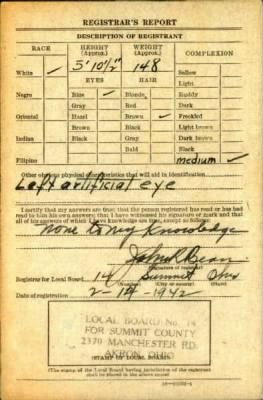 REGISTRAR'S REPORT
DESCRIPTION OF REGISTRANT
RACE HEIGHT (Approx.) WEIGHT (Approx.) COMPLEXION
White ✓ 5' 10½" 148 Sallow
EYES HAIR Light
Negro Blue ✓ Blonde Ruddy
Gray Red Dark
Oriental Hazel Brown ✓ Freckled
Brown Black Light brown
Indian Black Gray Dark brown
Bald Black
Filipino medium ✓
Other obvious physical characteristics that will aid in identification
Left artificial eye
I certify that my answers are true; that the person registered has read or has had
read to him his own answers; that I have witnessed his signature or mark and that
all of his answers of which I have knowledge are true, except as follows:
None to my Knowledge
John R Bean
Signature of registrar
Registrar for Local Board 14 Summit Ohio
(Number) (City or county) (State)
Date of registration 2-14 1942
LOCAL BOARD No. 14
FOR SUMMIT COUNTY
2370 MANCHESTER RD.
AKRON, OHIO
(STAMP OF LOCAL BOARD)
(The stamp of the Local Board having jurisdiction of the registrant
shall be placed in the above space)